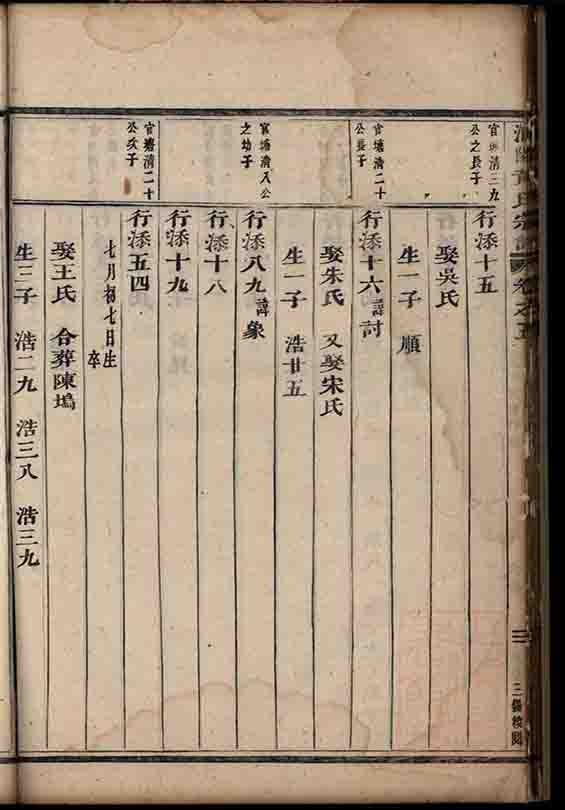 官塘清三九
公之長子
行添十五
娶吳氏
生一子 順
官塘清二十
公長子
行添十六 諱討
娶朱氏 又娶宋氏
生一子 浩廿五
官塘清八公
之幼子
行添八九 諱象
行添十八
行添十九
官塘清二十
公次子
行添五四
七月初七日生
卒
娶王氏 合葬陳塢
生三子 浩二九 浩三八 浩三九